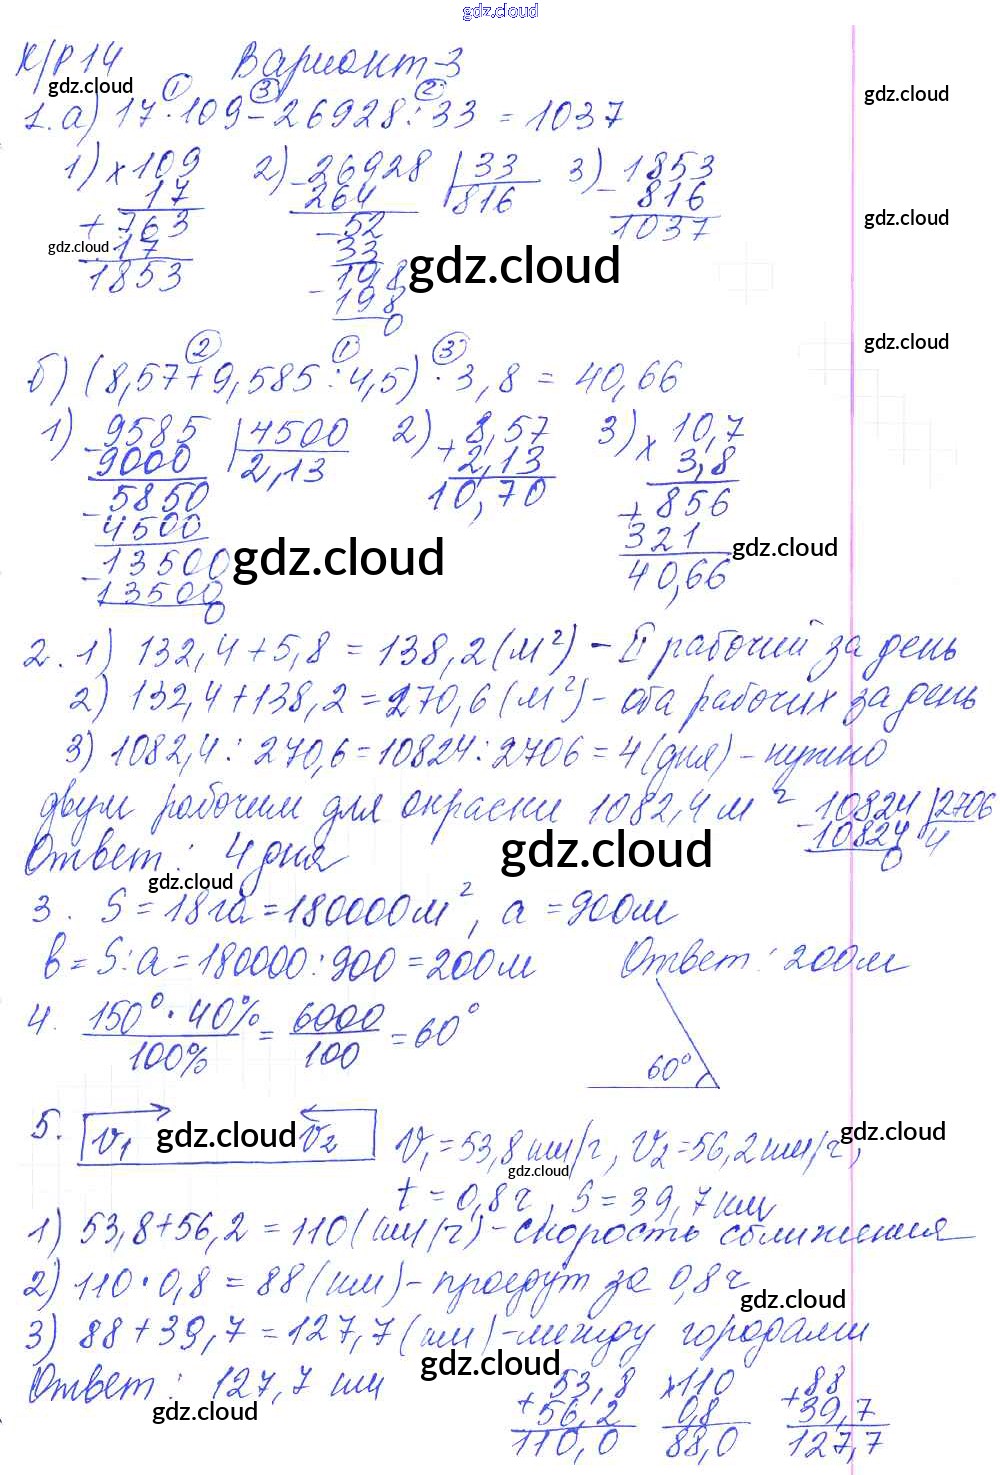 gdz.cloud
К/Р 14 Вариант 3
gdz.cloud gdz.cloud
① ③ ②
1. а) 17 · 109 - 26928 : 33 = 1037
1) × 109 2) - 26928 | 33 3) - 1853
17 264 816 816
+ 763 - 52 1037 gdz.cloud
gdz.cloud 17 33 gdz.cloud
1853 - 198
198
0
② ① ③ gdz.cloud
б) (8,57 + 9,585 : 4,5) · 3,8 = 40,66
1) - 9585 | 4500 2) + 8,57 3) × 10,7
9000 2,13 2,13 3,8
- 5850 10,70 + 856
4500 321 gdz.cloud
- 13500 gdz.cloud 40,66
13500
0
2. 1) 132,4 + 5,8 = 138,2 (м²) - II рабочий за день
2) 132,4 + 138,2 = 270,6 (м²) - оба рабочих за день
3) 1082,4 : 270,6 = 10824 : 2706 = 4 (дня) - нужно
двум рабочим для окраски 1082,4 м² - 10824 | 2706
10824 4
0
Ответ: 4 дня gdz.cloud
gdz.cloud
3. S = 18 га = 180000 м², a = 900 м
b = S : a = 180000 : 900 = 200 м Ответ: 200 м
4. 150° · 40% / 100% = 6000 / 100 = 60°
60°
5. v₁ gdz.cloud v₂ v₁ = 53,8 км/ч, v₂ = 56,2 км/ч, gdz.cloud
gdz.cloud
t = 0,8 ч, S = 39,7 км
1) 53,8 + 56,2 = 110 (км/ч) - скорость сближения
2) 110 · 0,8 = 88 (км) - проедут за 0,8 ч
gdz.cloud
3) 88 + 39,7 = 127,7 (км) - между городами
gdz.cloud
Ответ: 127,7 км
gdz.cloud
+ 53,8 × 110 + 88
56,2 0,8 39,7
110,0 88,0 127,7